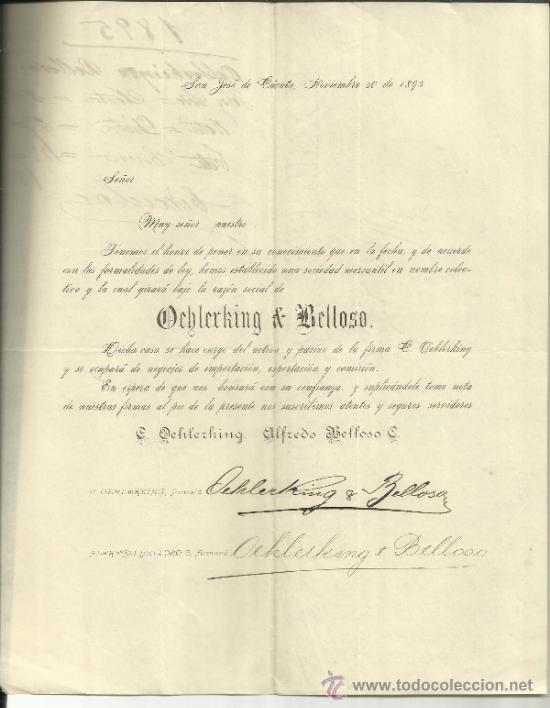 1895
San José de Cúcuta, Noviembre 30 de 1895
Señor
Muy señor nuestro
Tenemos el honor de poner en su conocimiento que en la fecha, y de acuerdo
con las formalidades de ley, hemos establecido una sociedad mercantil en nombre colec-
tivo y la cual girará bajo la razón social de
Oehlerking & Belloso.
Dicha casa se hace cargo del activo y pasivo de la firma E. Oehlerking
y se ocupará de negocios de importación, exportación y comisión.
En espera de que nos honrará con su confianza, y suplicándole tome nota
de nuestras firmas al pie de la presente nos suscribimos atentos y seguros servidores
E. Oehlerking. Alfredo Belloso C.
OEHLERKING, firmará Oehlerking & Belloso
ALFREDO BELLOSO C. firmará Oehlerking & Belloso
www.todocoleccion.net